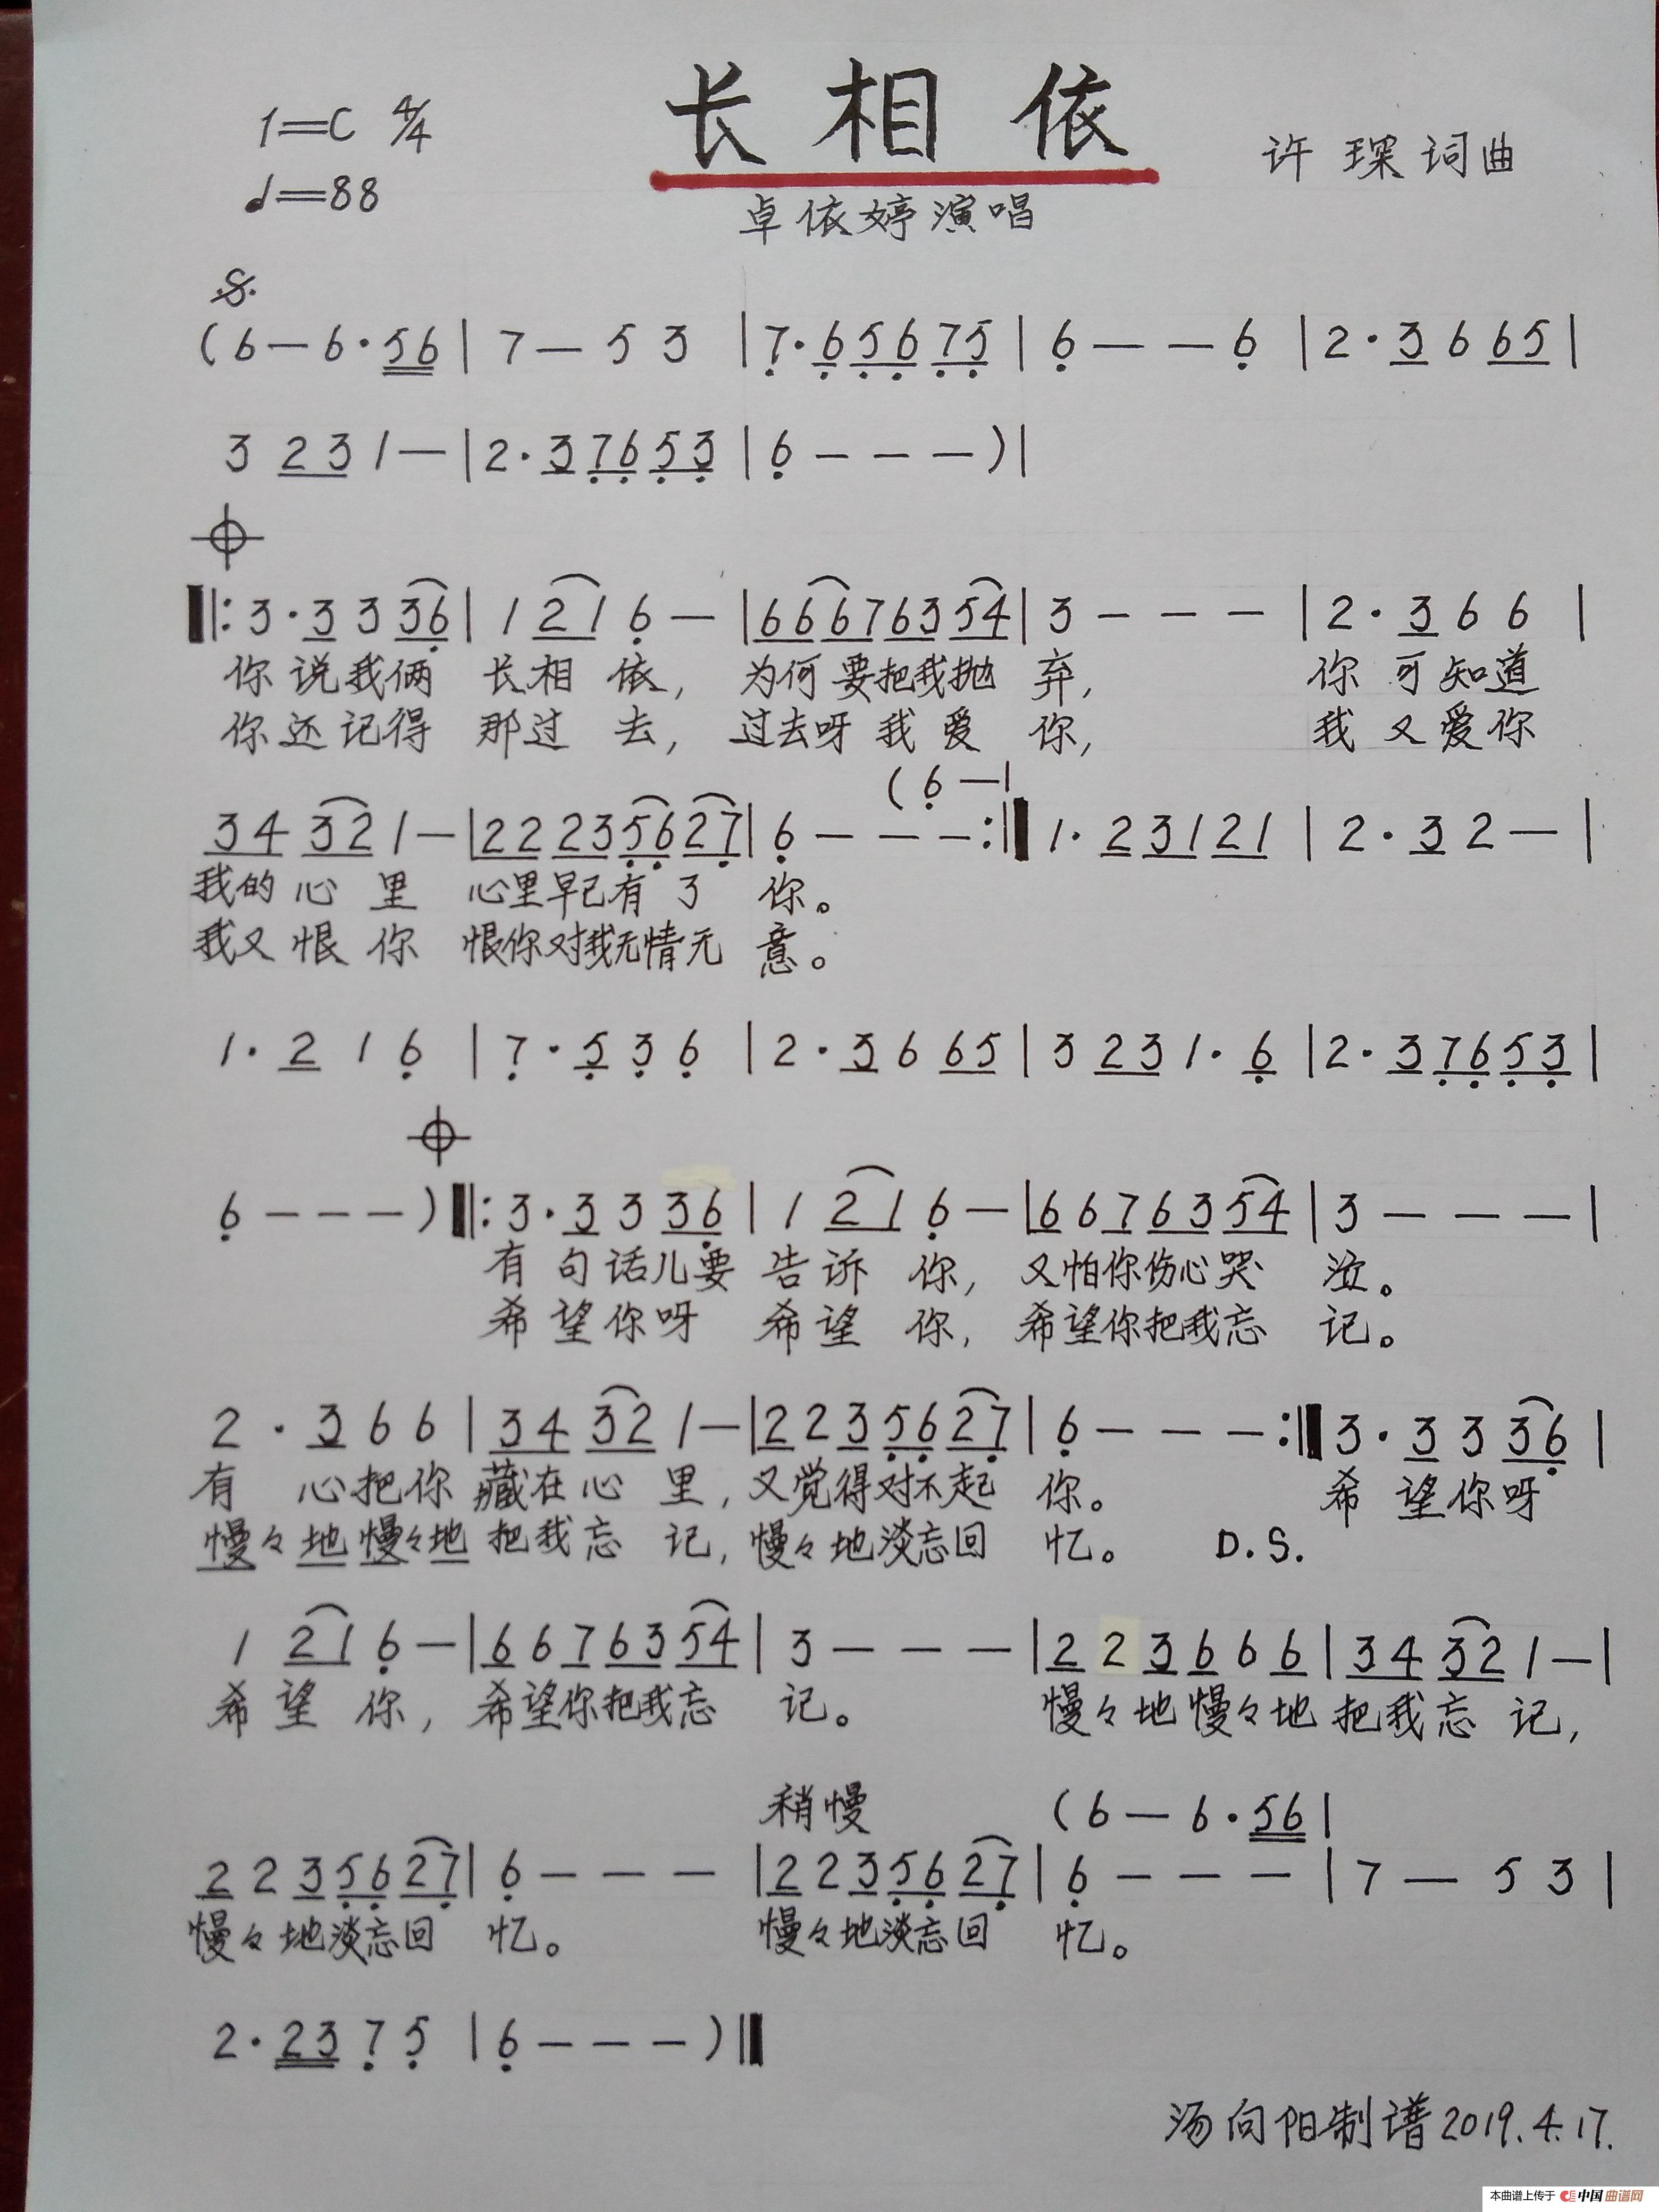 长相依
1=C 4/4
许琛词曲
♩=88
卓依婷演唱
𝄋
(6—6·56|7—53|7·65675|6——6|2·36665|
3231—|2·37653|6———)|
𝄌
‖:3·3336|1216—|66676354|3———|2·366|
你说我俩 长相依, 为何要把我抛弃, 你可知道
你还记得 那过去, 过去呀我爱你, 我又爱你
(6—|
34321—|22235627|6———:‖1·23121|2·32—|
我的心里 心里早已有了你。
我又恨你 恨你对我无情无意。
1·216|7·536|2·3665|3231·6|2·37653|
𝄌
6———)‖:3·3336|1216—|6676354|3———|
有句话儿要 告诉你, 又怕你伤心哭泣。
希望你呀 希望你, 希望你把我忘记。
2·366|34321—|2235627|6———:‖3·3336|
有心把你 藏在心里, 又觉得对不起你。 希望你呀
慢々地慢々地 把我忘记, 慢々地淡忘回忆。 D.S.
1216—|6676354|3———|223666|34321—|
希望你, 希望你把我忘记。 慢々地慢々地 把我忘记,
稍慢 (6—6·56|
2235627|6———|2235627|6———|7—53|
慢々地淡忘回忆。 慢々地淡忘回忆。
2·2375|6———)‖
汤向阳制谱2019.4.17.
本曲谱上传于 中国曲谱网